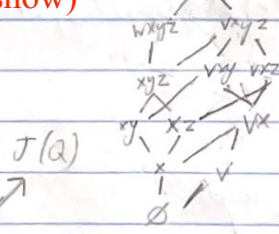 show)
wxyz vxyz
xyz vxy vxz
xy xz vx
J(Q)
x v
∅